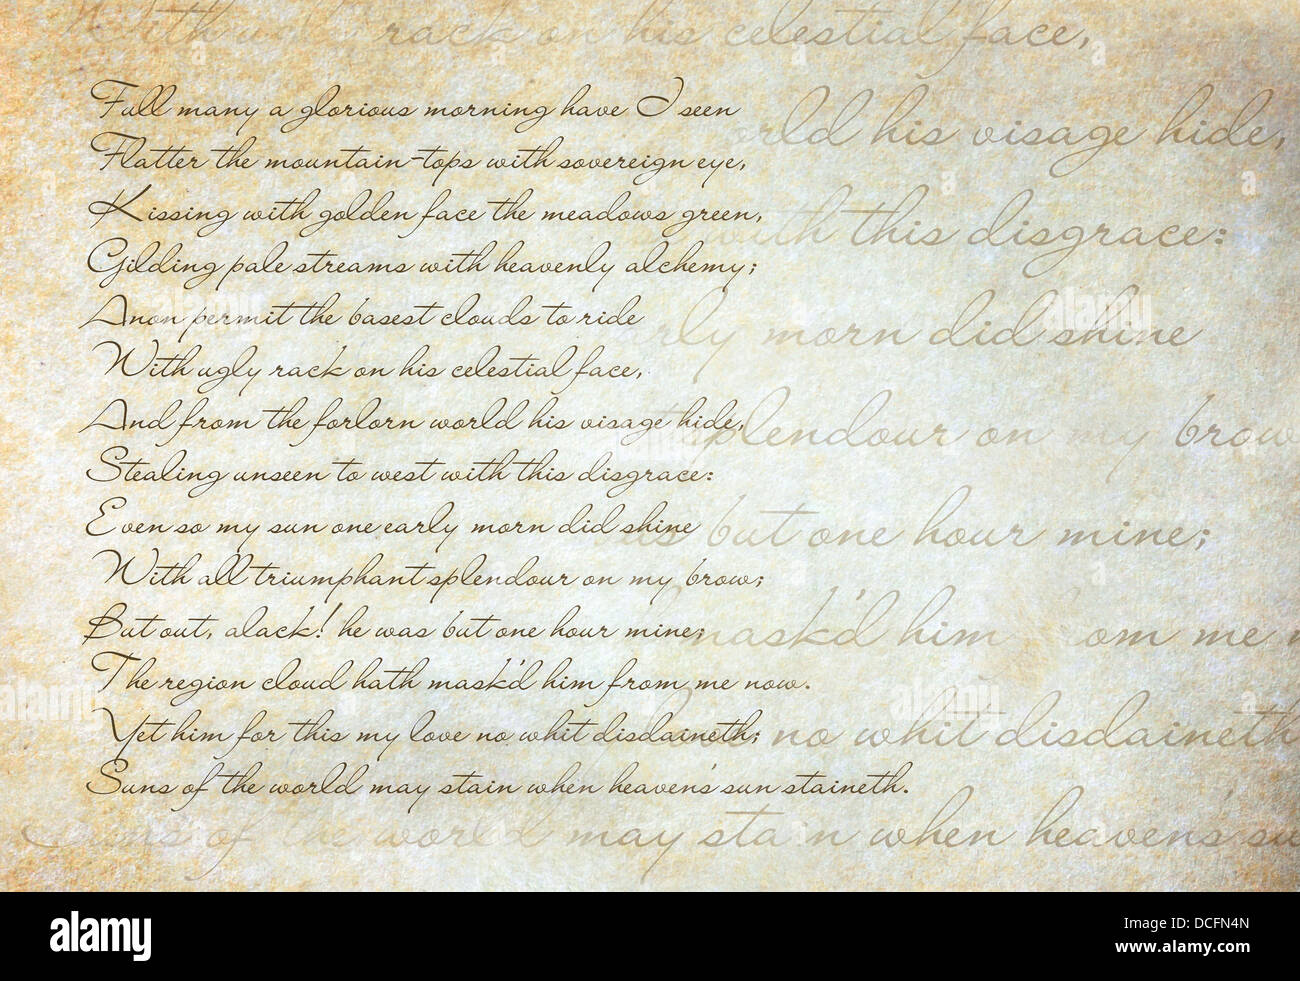 With ugly rack on his celestial face,
Full many a glorious morning have I seen
Flatter the mountain-tops with sovereign eye,
Kissing with golden face the meadows green,
Gilding pale streams with heavenly alchemy;
Anon permit the basest clouds to ride
With ugly rack on his celestial face,
And from the forlorn world his visage hide,
Stealing unseen to west with this disgrace:
Even so my sun one early morn did shine
With all triumphant splendour on my brow;
But out, alack! he was but one hour mine;
The region cloud hath mask'd him from me now.
Yet him for this my love no whit disdaineth;
Suns of the world may stain when heaven's sun staineth.
orld his visage hide,
with this disgrace:
rly morn did shine
splendour on my brow
as but one hour mine;
mask'd him from me n
no whit disdaineth
Suns of the world may stain when heaven's su
alamy
a
alamy
a
alamy
a
alamy
alamy
Image ID: DCFN4N
www.alamy.com